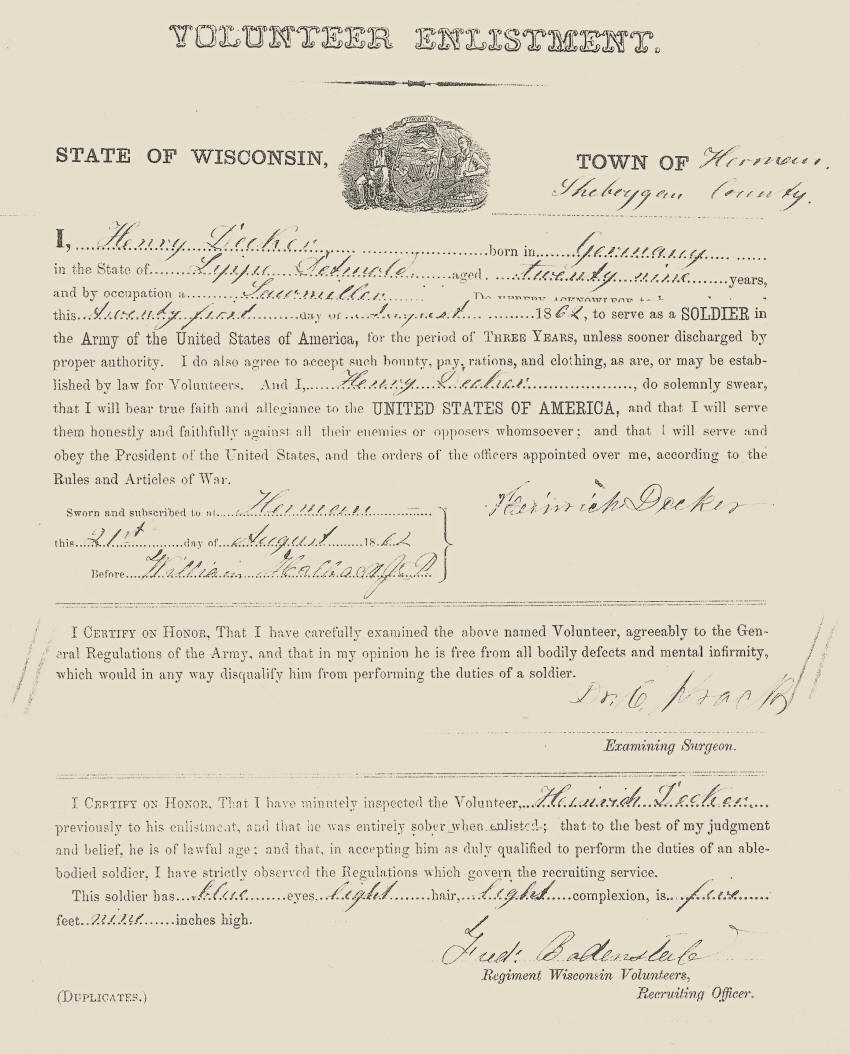 VOLUNTEER ENLISTMENT.
STATE OF WISCONSIN,
TOWN OF Herman.
Sheboygan County.
I, Henry Decker born in Germany
in the State of Lippe Detmold aged twenty nine years,
and by occupation a Sawmiller Do HEREBY ACKNOWLEDGE to
this twenty first day of August 1862, to serve as a SOLDIER in
the Army of the United States of America, for the period of THREE YEARS, unless sooner discharged by
proper authority. I do also agree to accept such bounty, pay, rations, and clothing, as are, or may be estab-
lished by law for Volunteers. And I, Henry Decker, do solemnly swear,
that I will bear true faith and allegiance to the UNITED STATES OF AMERICA, and that I will serve
them honestly and faithfully against all their enemies or opposers whomsoever; and that I will serve and
obey the President of the United States, and the orders of the officers appointed over me, according to the
Rules and Articles of War.
Sworn and subscribed to at Herman
Heinrich Decker
this 21st day of August 1862
Before William
I CERTIFY ON HONOR, That I have carefully examined the above named Volunteer, agreeably to the Gen-
eral Regulations of the Army, and that in my opinion he is free from all bodily defects and mental infirmity,
which would in any way disqualify him from performing the duties of a soldier.
Dr. C. Krack
Examining Surgeon.
I CERTIFY ON HONOR, That I have minutely inspected the Volunteer, Heinrich Decker,
previously to his enlistment, and that he was entirely sober when enlisted; that to the best of my judgment
and belief, he is of lawful age; and that, in accepting him as duly qualified to perform the duties of an able-
bodied soldier, I have strictly observed the Regulations which govern the recruiting service.
This soldier has blue eyes, light hair, light complexion, is five
feet nine inches high.
Fred: Bodenstab
Regiment Wisconsin Volunteers,
Recruiting Officer.
(DUPLICATES.)